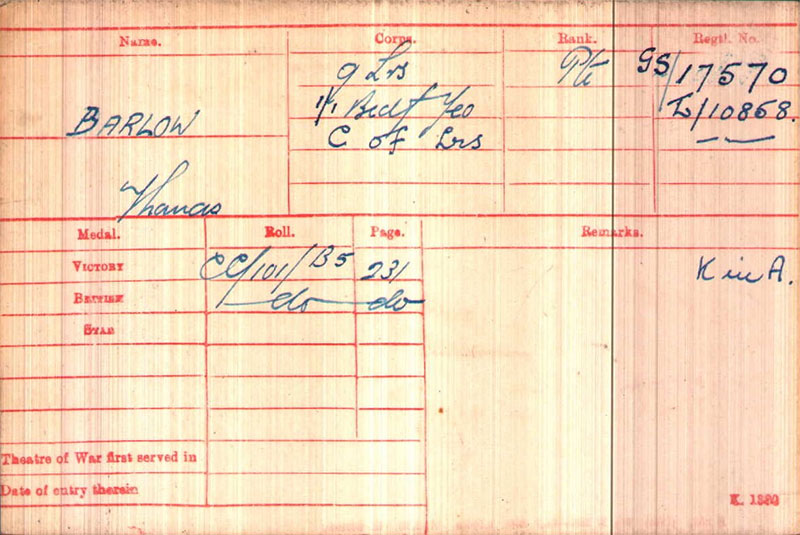 Name. Corps. Rank. Regtl. No.
9 Lrs Pte GS/17570
1/1 Bedf Yeo L/10868.
BARLOW C of Lrs
Thomas
Medal. Roll. Page. Remarks.
VICTORY CC/101/B5 231 K in A.
BRITISH do do
STAR
Theatre of War first served in
Date of entry therein
K. 1380